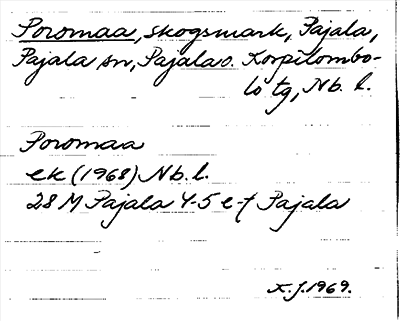 Poromaa, skogsmark, Pajala,
Pajala sn, Pajala o. Korpilombo-
lo tg, Nb. l.
Poromaa
ek (1968) Nb. l.
28 M Pajala 4-5 e-f Pajala
K. J. 1969.